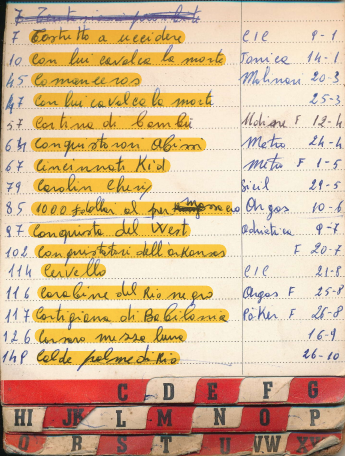 7 Costretto a uccidere CIC 9-1
10 Con lui cavalca la morte Jonica 14-1
45 Comanceros Molinari 20-3
47 Con lui cavalca la morte 25-3
57 Cortina di bambù F 12-4
634 Conquistatori Abissi Metro 24-4
67 Cincinnati Kid Metro F 1-5
79 Carolin Chery Sicil 29-5
85 1000 dollari al per massacro Orgas 10-6
97 Conquista del West Adriatica 9-7
102 Conquistatori dell'Arkansas F 20-7
114 Cervello CIC 21-8
116 Carabine del Rio negro Orgas F 25-8
117 Cortigiana di Babilonia Póker F 28-8
126 Corsaro mezza luna 16-9
148 Calde palme di Rio 26-10
C D E F G
HI JK L M N O P
Q R S T U V.W XY